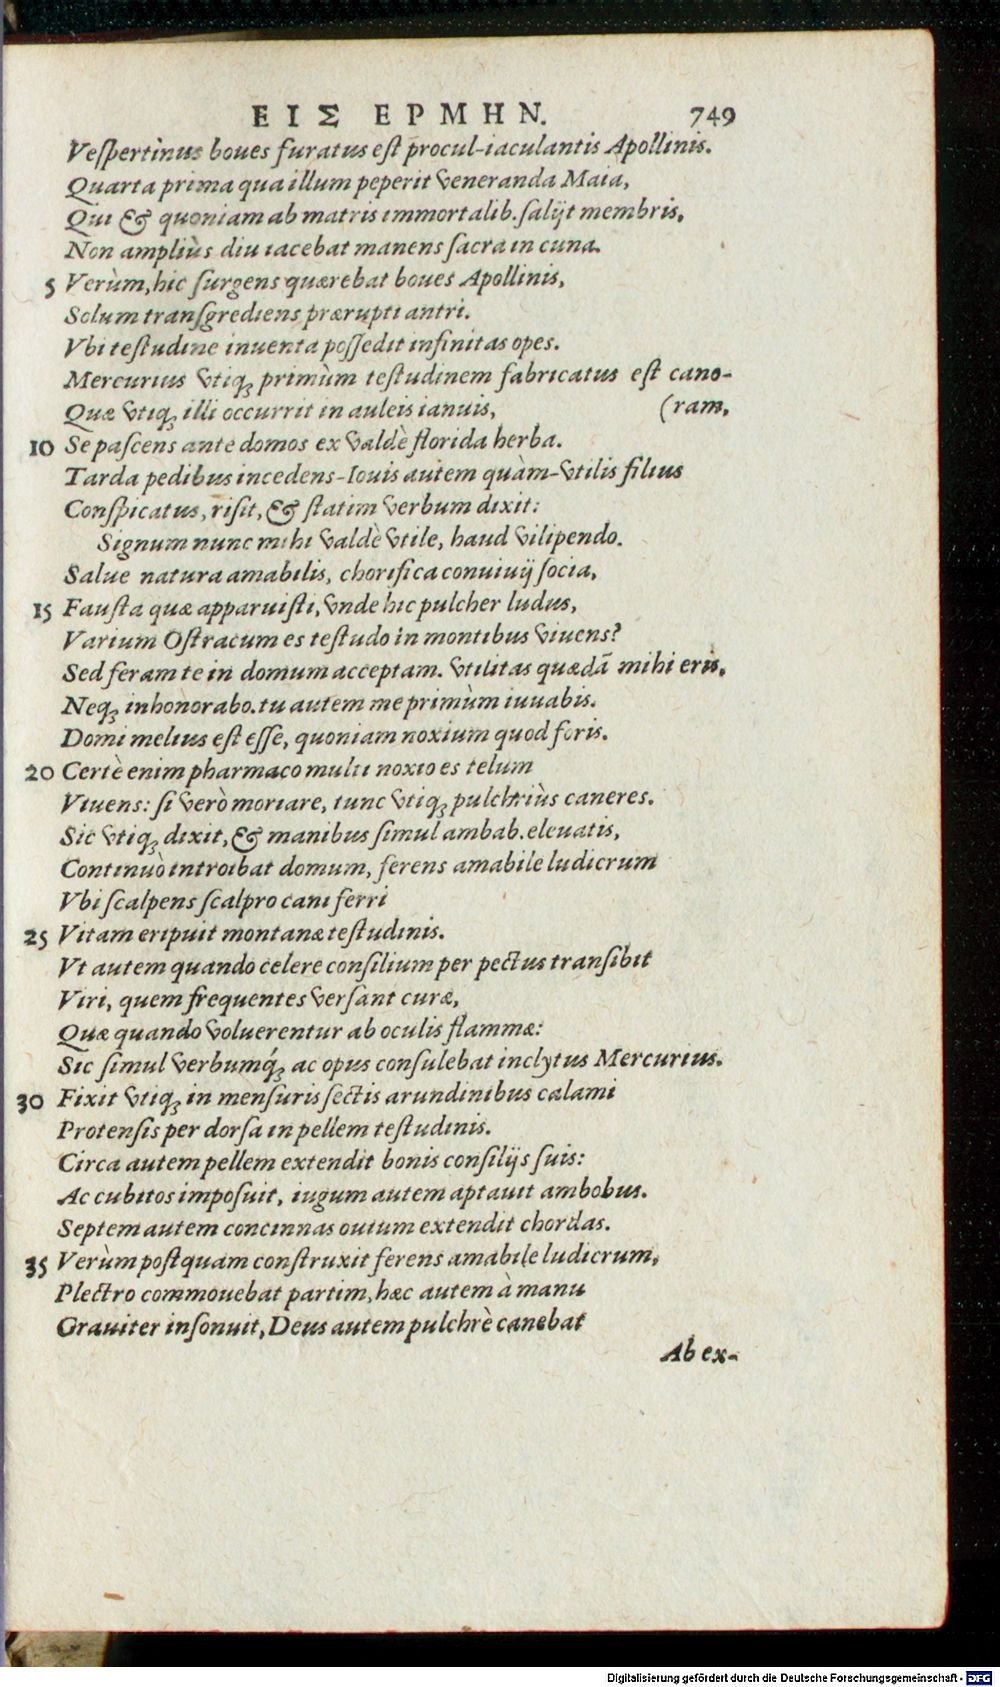 ΕΙΣ ΕΡΜΗΝ. 749
Veſpertinus boues furatus eſt procul-iaculantis Apollinis.
Quarta prima qua illum peperit veneranda Maia,
Qui & quoniam ab matris immortalib. ſalijt membris,
Non ampliùs diu iacebat manens ſacra in cuna.
5 Verùm, hic ſurgens quærebat boues Apollinis,
Solum tranſgrediens prærupti antri.
Vbi teſtudine inuenta poſſedit infinitas opes.
Mercurius vtiq; primùm teſtudinem fabricatus eſt cano-
Quæ vtiq; illi occurrit in auleis ianuis, (ram,
10 Se paſcens ante domos ex valdè florida herba.
Tarda pedibus incedens-Iouis autem quàm-vtilis filius
Conſpicatus, riſit, & ſtatim verbum dixit:
Signum nunc mihi valdè vtile, haud vilipendo.
Salue natura amabilis, choriſica conuiuij ſocia,
15 Fauſta quæ apparuiſti, vnde hic pulcher ludus,
Varium Oſtracum es teſtudo in montibus viuens?
Sed feram te in domum acceptam. vtilitas quædã mihi eris,
Neq; inhonorabo. tu autem me primùm iuuabis.
Domi melius eſt eſſe, quoniam noxium quod foris.
20 Certè enim pharmaco multi noxio es telum
Viuens: ſi verò moriare, tunc vtiq; pulchriùs caneres.
Sic vtiq; dixit, & manibus ſimul ambab. eleuatis,
Continuò introibat domum, ferens amabile ludicrum
Vbi ſcalpens ſcalpro cani ferri
25 Vitam eripuit montanæ teſtudinis.
Vt autem quando celere conſilium per pectus tranſibit
Viri, quem frequentes verſant curæ,
Quæ quando voluerentur ab oculis flammæ:
Sic ſimul verbumq́; ac opus conſulebat inclytus Mercurius.
30 Fixit vtiq; in menſuris ſectis arundinibus calami
Protenſis per dorſa in pellem teſtudinis.
Circa autem pellem extendit bonis conſilijs ſuis:
Ac cubitos impoſuit, iugum autem aptauit ambobus.
Septem autem concinnas ouium extendit chordas.
35 Verùm poſtquam conſtruxit ferens amabile ludicrum,
Plectro commouebat partim, hæc autem à manu
Grauiter inſonuit, Deus autem pulchrè canebat
Ab ex-
Digitalisierung gefördert durch die Deutsche Forschungsgemeinschaft - DFG